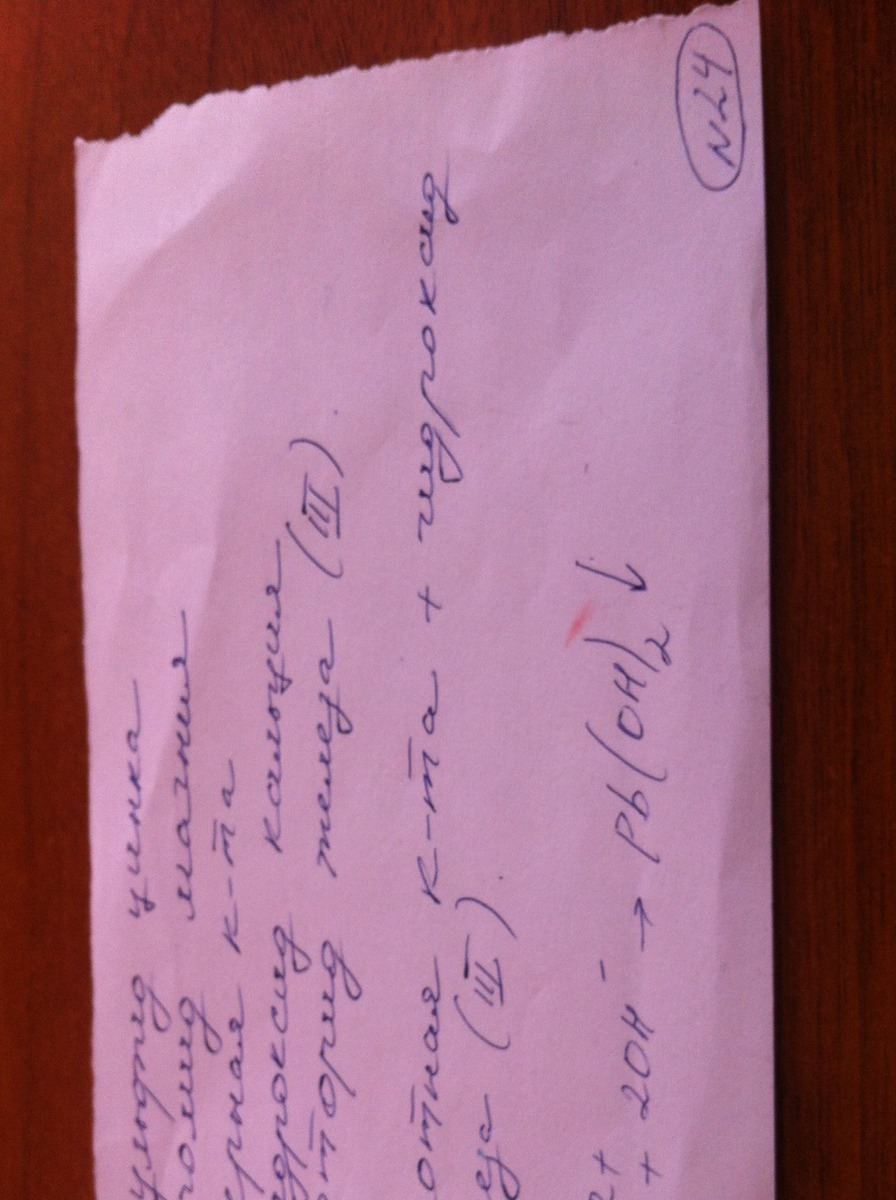 №24
ульфид цинка
ромид магния
ерная к-та
идроксид кальция
фторид железа (III).
отная к-та + гидроксид
еза (III).
2+
+ 2OH⁻ → Pb(OH)₂ ↓